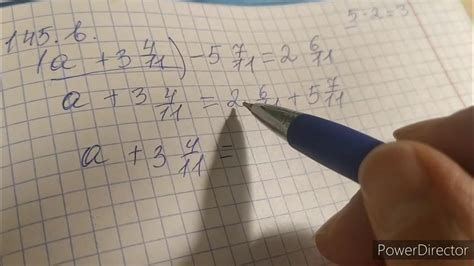 5·2=3
145. в.
(a + 3 4/11) - 5 7/11 = 2 6/11
a + 3 4/11 = 2 6/11 + 5 7/11
a + 3 4/11 =
PowerDirector